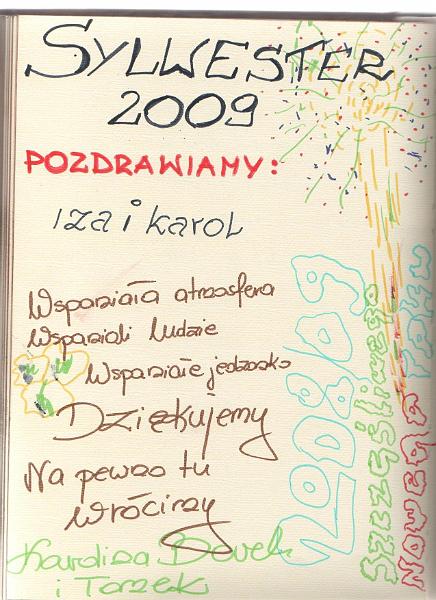 SYLWESTER
2009
POZDRAWIAMY:
Iza i Karol
Wspaniała atmosfera
Wspaniali ludzie
Wspaniałe jedzonko
Dziękujemy
Na pewno tu
wrócimy
Karolina Darek
i Tomek
2008/09
Szczęśliwego
Nowego Roku